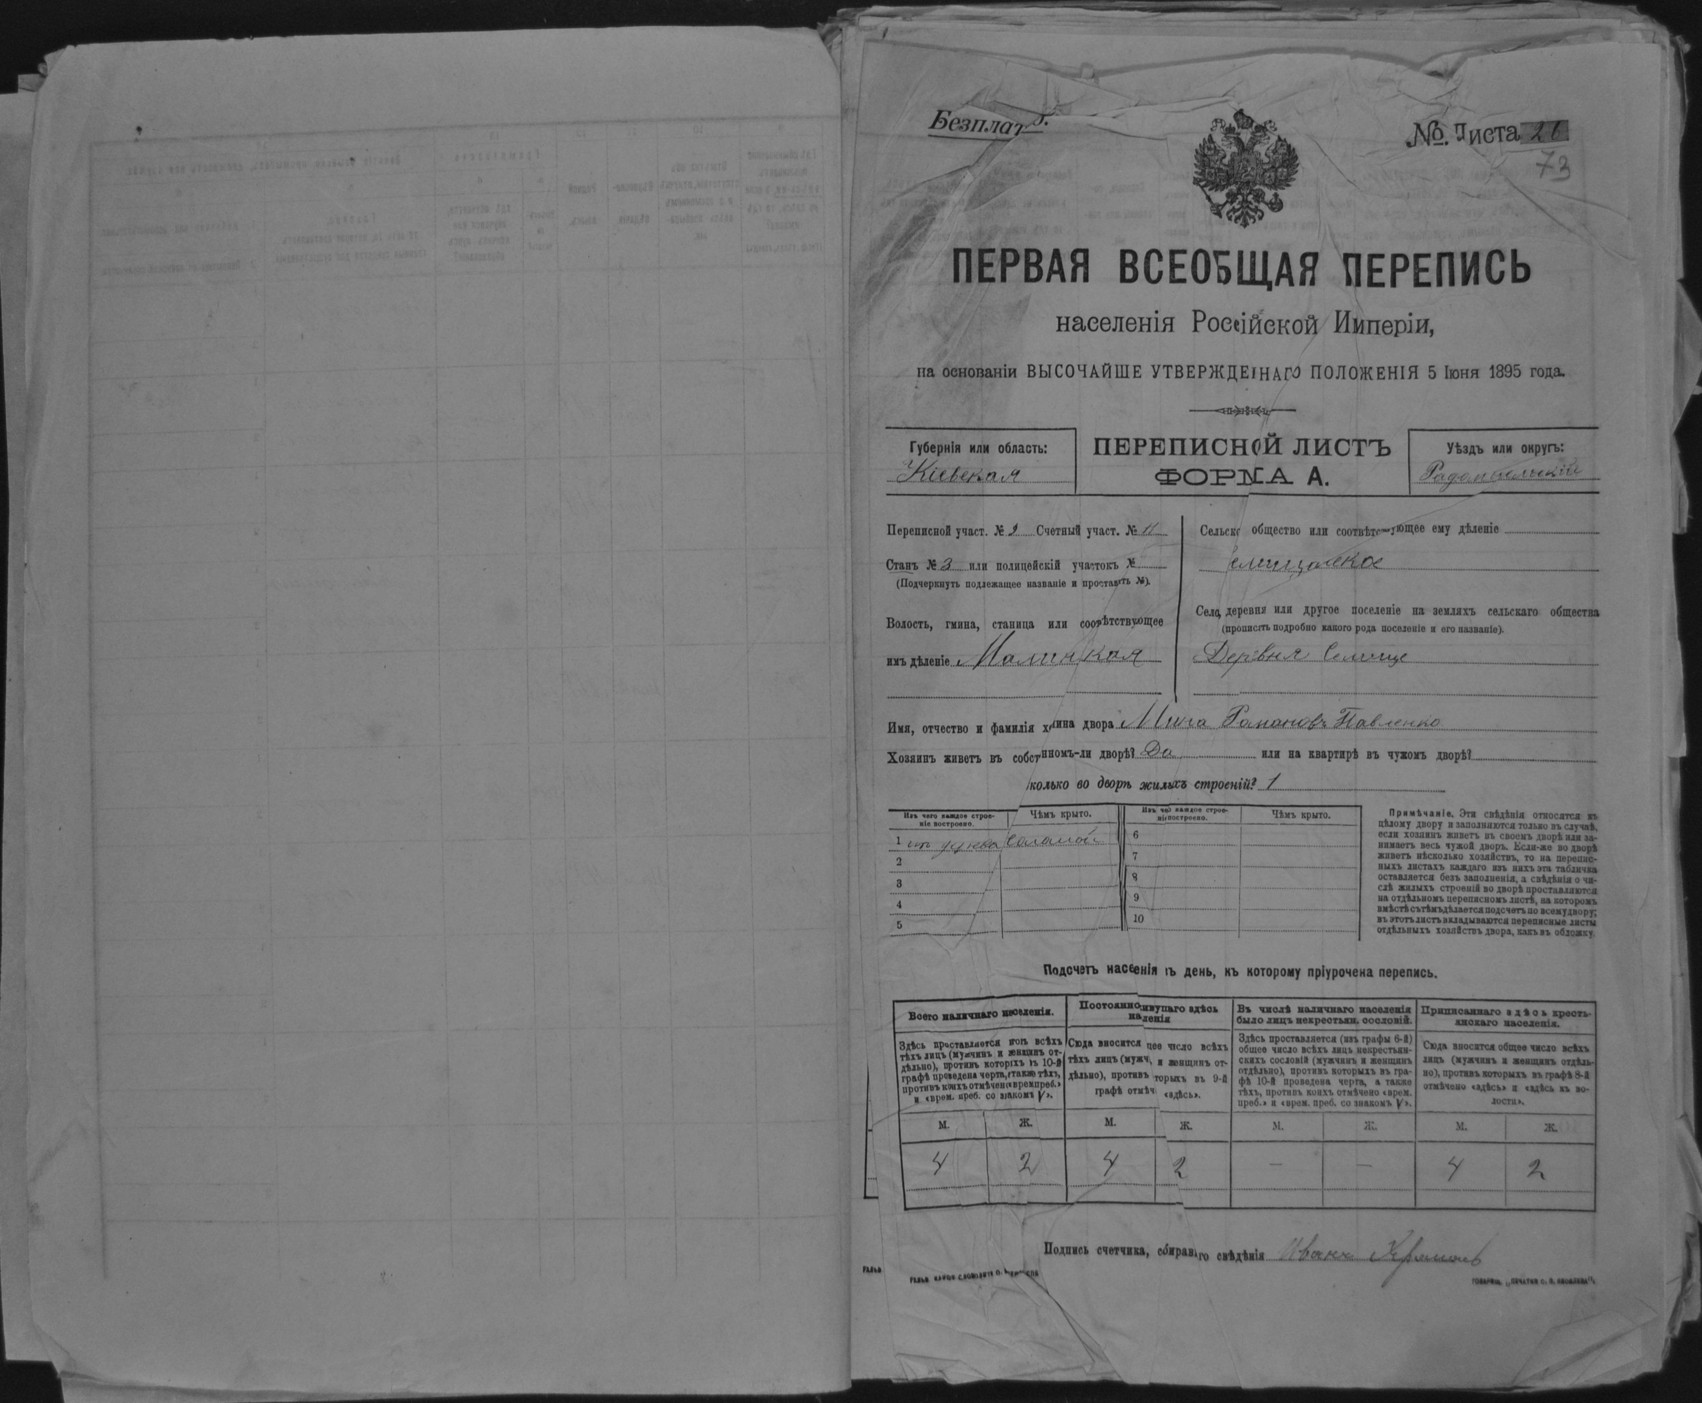 Безплат
№ Листа 21
73
ПЕРВАЯ ВСЕОБЩАЯ ПЕРЕПИСЬ
населенія Россійской Имперіи,
на основаніи ВЫСОЧАЙШЕ УТВЕРЖДЕННАГО ПОЛОЖЕНІЯ 5 Іюня 1895 года.
Губернія или область:
Кіевская
ПЕРЕПИСНОЙ ЛИСТЪ
ФОРМА А.
Уѣздъ или округъ:
Радомысльскій
Переписной участ. № 2 Счетный участ. №
Станъ № 3 или полицейскій участокъ №
(Подчеркнуть подлежащее названіе и проставить №).
Волость, гмина, станица или соотвѣтствующее
имъ дѣленіе Малинская
Сельско общество или соотвѣтс ующее ему дѣленіе
Село, деревня или другое поселеніе на земляхъ сельскаго общества
(прописать подробно какого рода поселеніе и его названіе).
Деревня Селище
Имя, отчество и фамилія х ина двора Романовъ Павленко
Хозяинъ живетъ въ собст нномъ-ли дворѣ? Да или на квартирѣ въ чужомъ дворѣ?
колько во дворѣ жилыхъ строеній? 1
Изъ чего каждое строе-
ніе построено.
Чѣмъ крыто.
Изъ чего каждое строе-
ніе построено.
Чѣмъ крыто.
1 изъ дерева Соломой
2
3
4
5
6
7
8
9
10
Примѣчаніе. Эти свѣдѣнія относятся къ
цѣлому двору и заполняются только въ случаѣ,
если хозяинъ живетъ въ своемъ дворѣ или за-
нимаетъ весь чужой дворъ. Если-же во дворѣ
живетъ нѣсколько хозяйствъ, то на перепис-
ныхъ листахъ каждаго изъ нихъ эта табличка
оставляется безъ заполненія, а свѣдѣнія о чи-
слѣ жилыхъ строеній во дворѣ проставляются
на отдѣльномъ переписномъ листѣ, на которомъ
вмѣстѣ съ тѣмъ дѣлается подсчетъ по всему двору;
въ этотъ листъ вкладываются переписные листы
отдѣльныхъ хозяйствъ двора, какъ въ обложку.
Подсчетъ насе енія ъ день, къ которому пріурочена перепись.
Всего наличнаго населенія.
Здѣсь проставляется итогъ всѣхъ
тѣхъ лицъ (мужчинъ и женщинъ от-
дѣльно), противъ которыхъ въ 10-й
графѣ проведена черта, также тѣхъ,
противъ коихъ отмѣчено «врем. преб.»
и «врем. преб. со знакомъ V».
Постоянно ивущаго здѣсь
на ленія
Сюда вносится щее число всѣхъ
тѣхъ лицъ (мужч. и женщинъ от-
дѣльно), противъ торыхъ въ 9-й
графѣ отмѣч «здѣсь».
Въ числѣ наличнаго населенія
было лицъ некрестьян. сословій.
Здѣсь проставляется (изъ графы 6-й)
общее число всѣхъ лицъ некрестьян-
скихъ сословій (мужчинъ и женщинъ
отдѣльно), противъ которыхъ въ гра-
фѣ 10-й проведена черта, а также
тѣхъ, противъ коихъ отмѣчено «врем.
преб.» и «врем. преб. со знакомъ V».
Приписаннаго здѣсь кресть-
янскаго населенія.
Сюда вносится общее число всѣхъ
лицъ (мужчинъ и женщинъ отдѣль-
но), противъ которыхъ въ графѣ 8-й
отмѣчено «здѣсь» и «здѣсь въ во-
лости».
М. Ж. М. Ж. М. Ж. М. Ж.
4 2 4 2 — — 4 2
Подпись счетчика, собирав го свѣдѣнія Иванъ